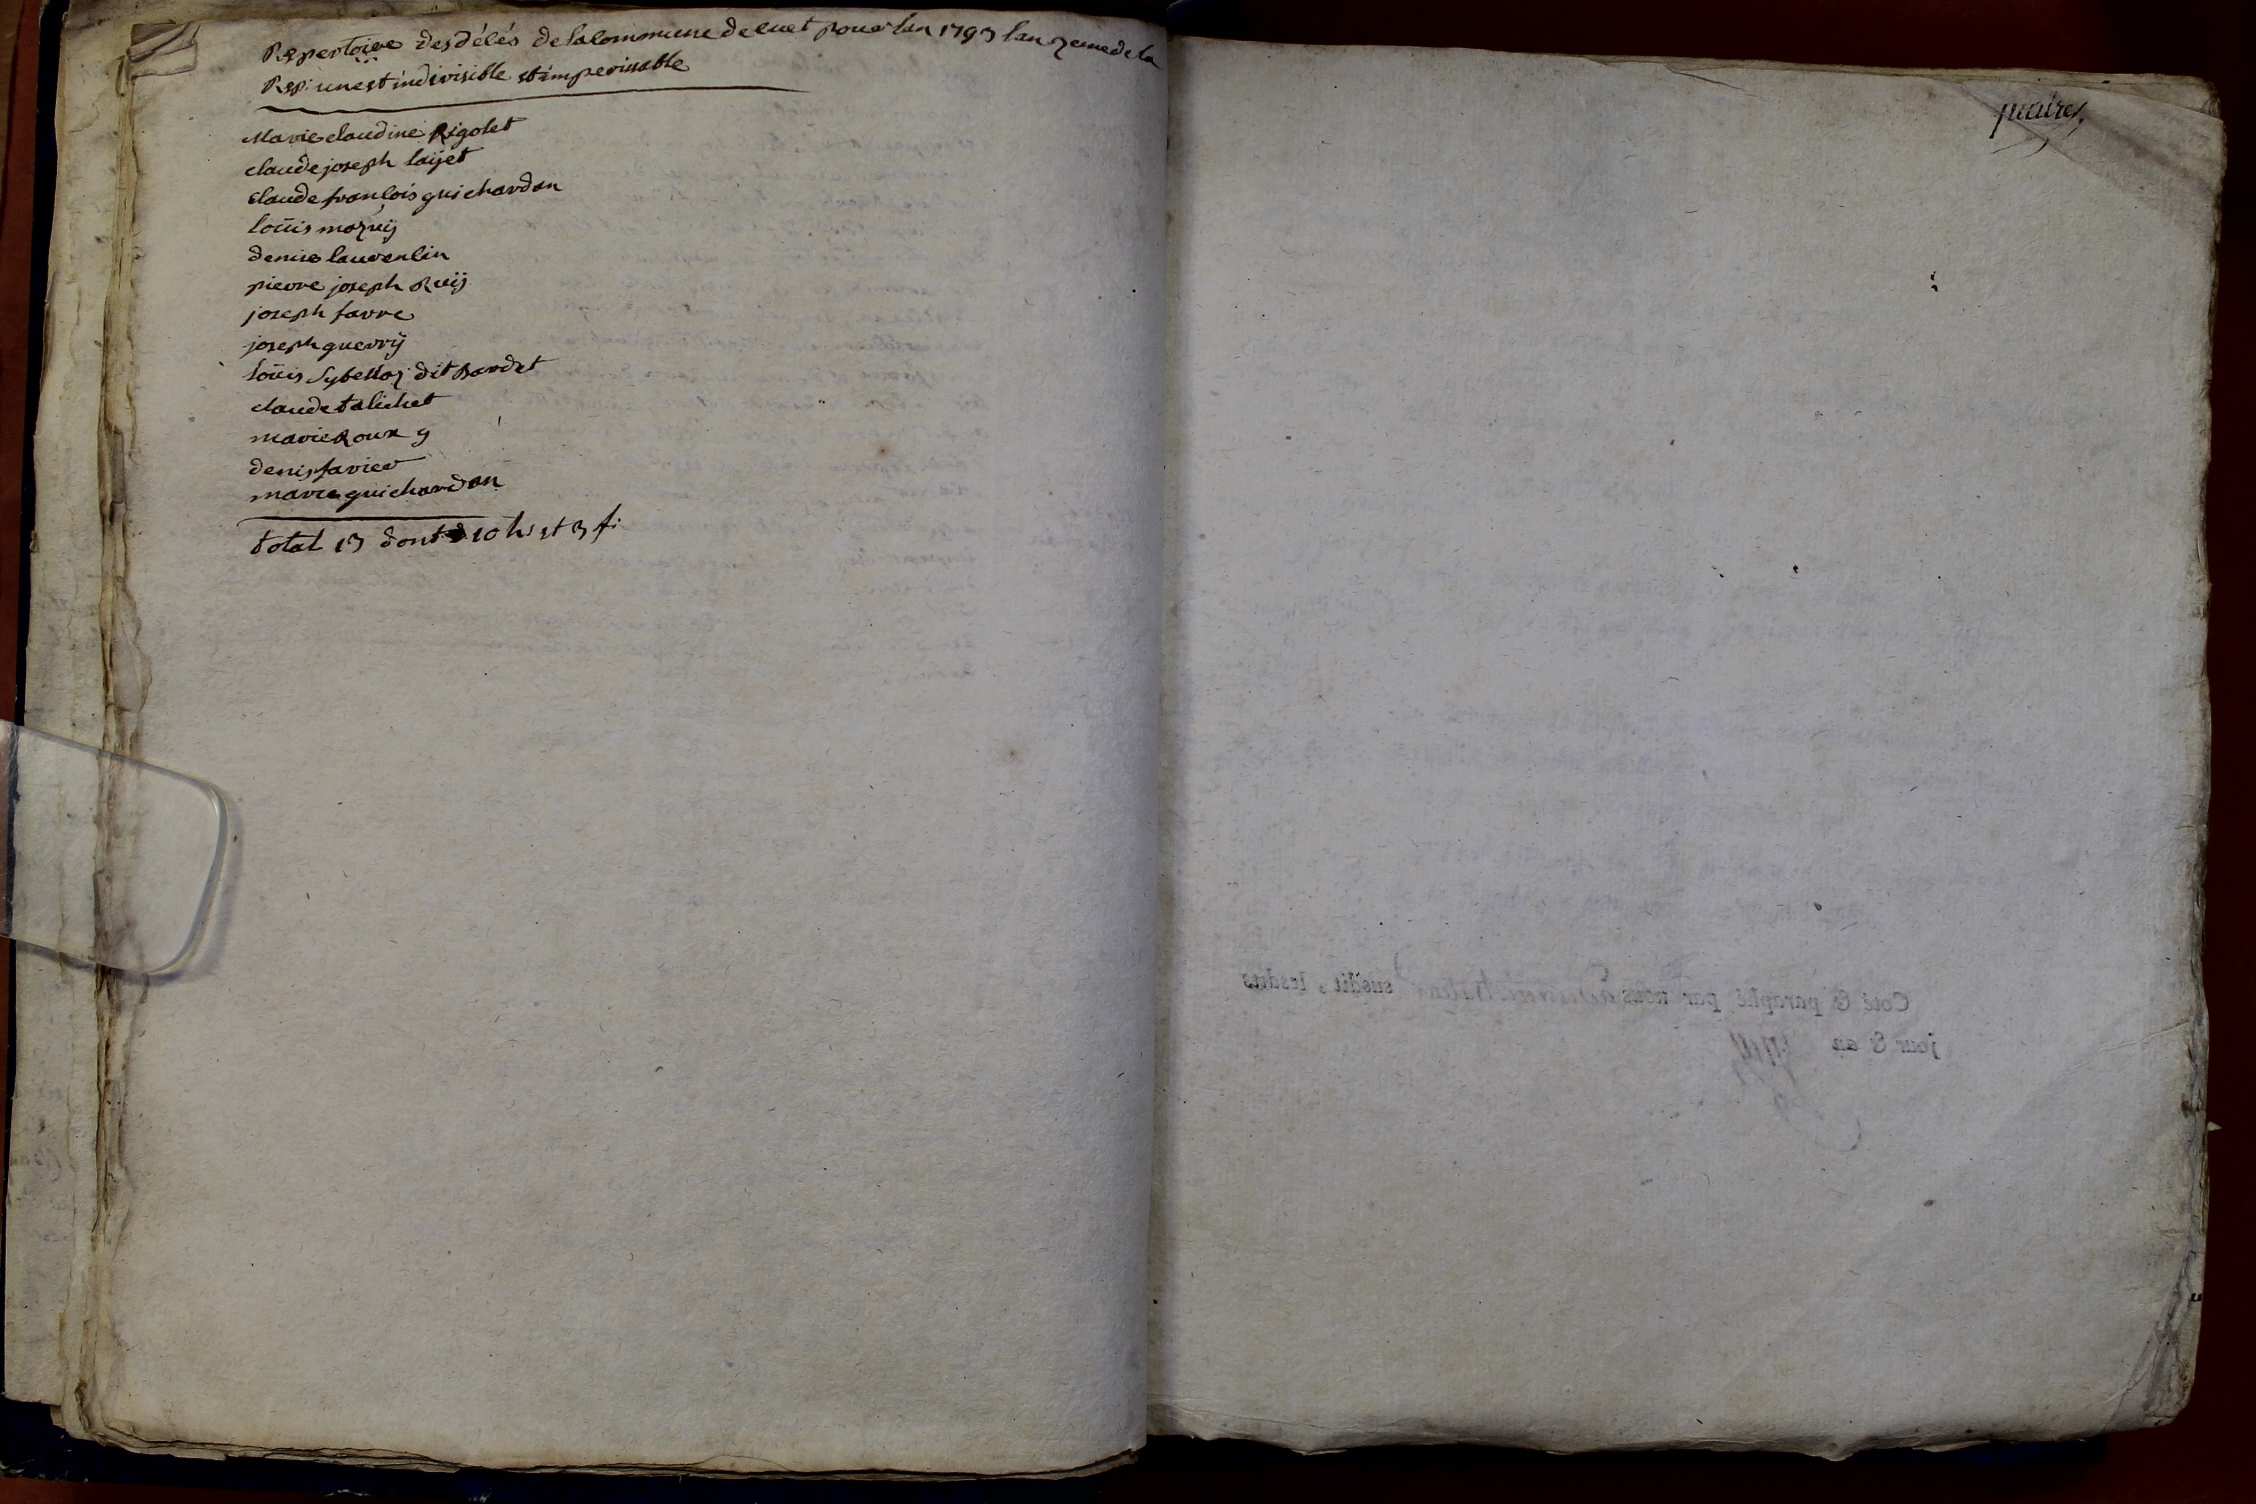 Repertoire des délés de la commune de cuet pour lan 1793 lan 2eme de la
Rep: une et indivisible et imperissable
Marie claudine Rigolet
claude joseph laijet
claude françois guichardan
loüis
denise laurenlin
pierre joseph Ruij
joseph favre
joseph guerrÿ
loüis dit Bardet
claude talichet
marie Roux
denis favier
marie guichardan
total 13 dont 10 h: et 3 f:
quatre
Coté & paraphé par nous susdit, lesdits
jour & an